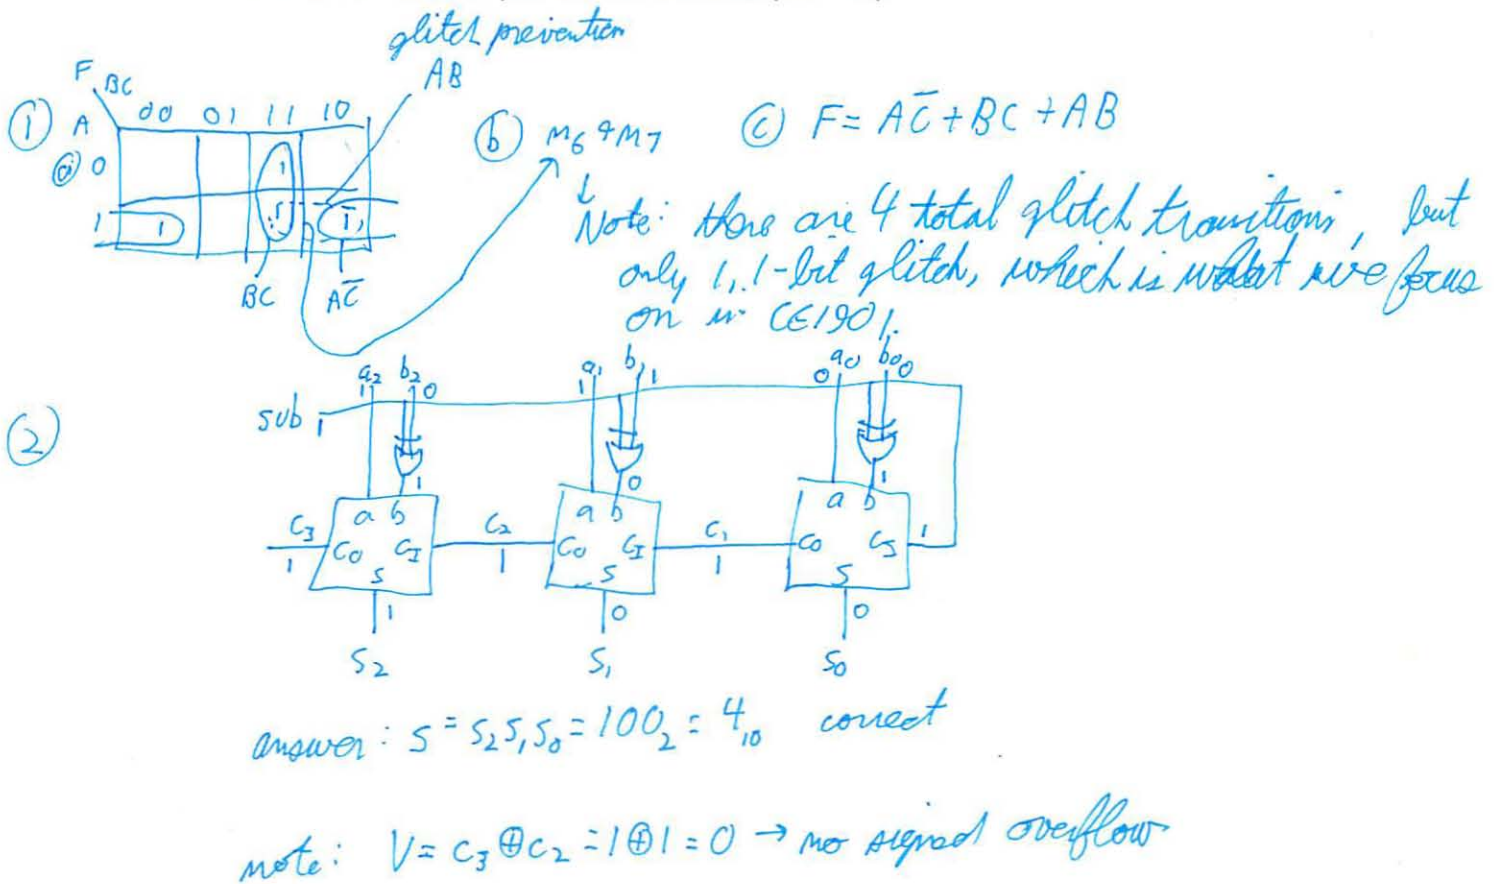 glitch prevention
AB
F BC
① A 00 01 11 10
ⓐ 0 1
1 1 1 1
BC AC̅
ⓑ m6 & m7
ⓒ F = AC̅ + BC + AB
Note: there are 4 total glitch transitions, but
only 1, 1-bit glitch, which is what we focus
on in CE1901.
②
a2 b2 a1 b1 a0 b0
1 0 1 1 0 0
sub 1
1 0 1
a b a b a b
C3 CO CI C2 CO CI C1 CO CI 1
1 S 1 S 1 S
1 0 0
S2 S1 S0
answer: S = S2S1S0 = 100₂ = 4₁₀ correct
note: V = C3 ⊕ C2 = 1 ⊕ 1 = 0 → no signed overflow